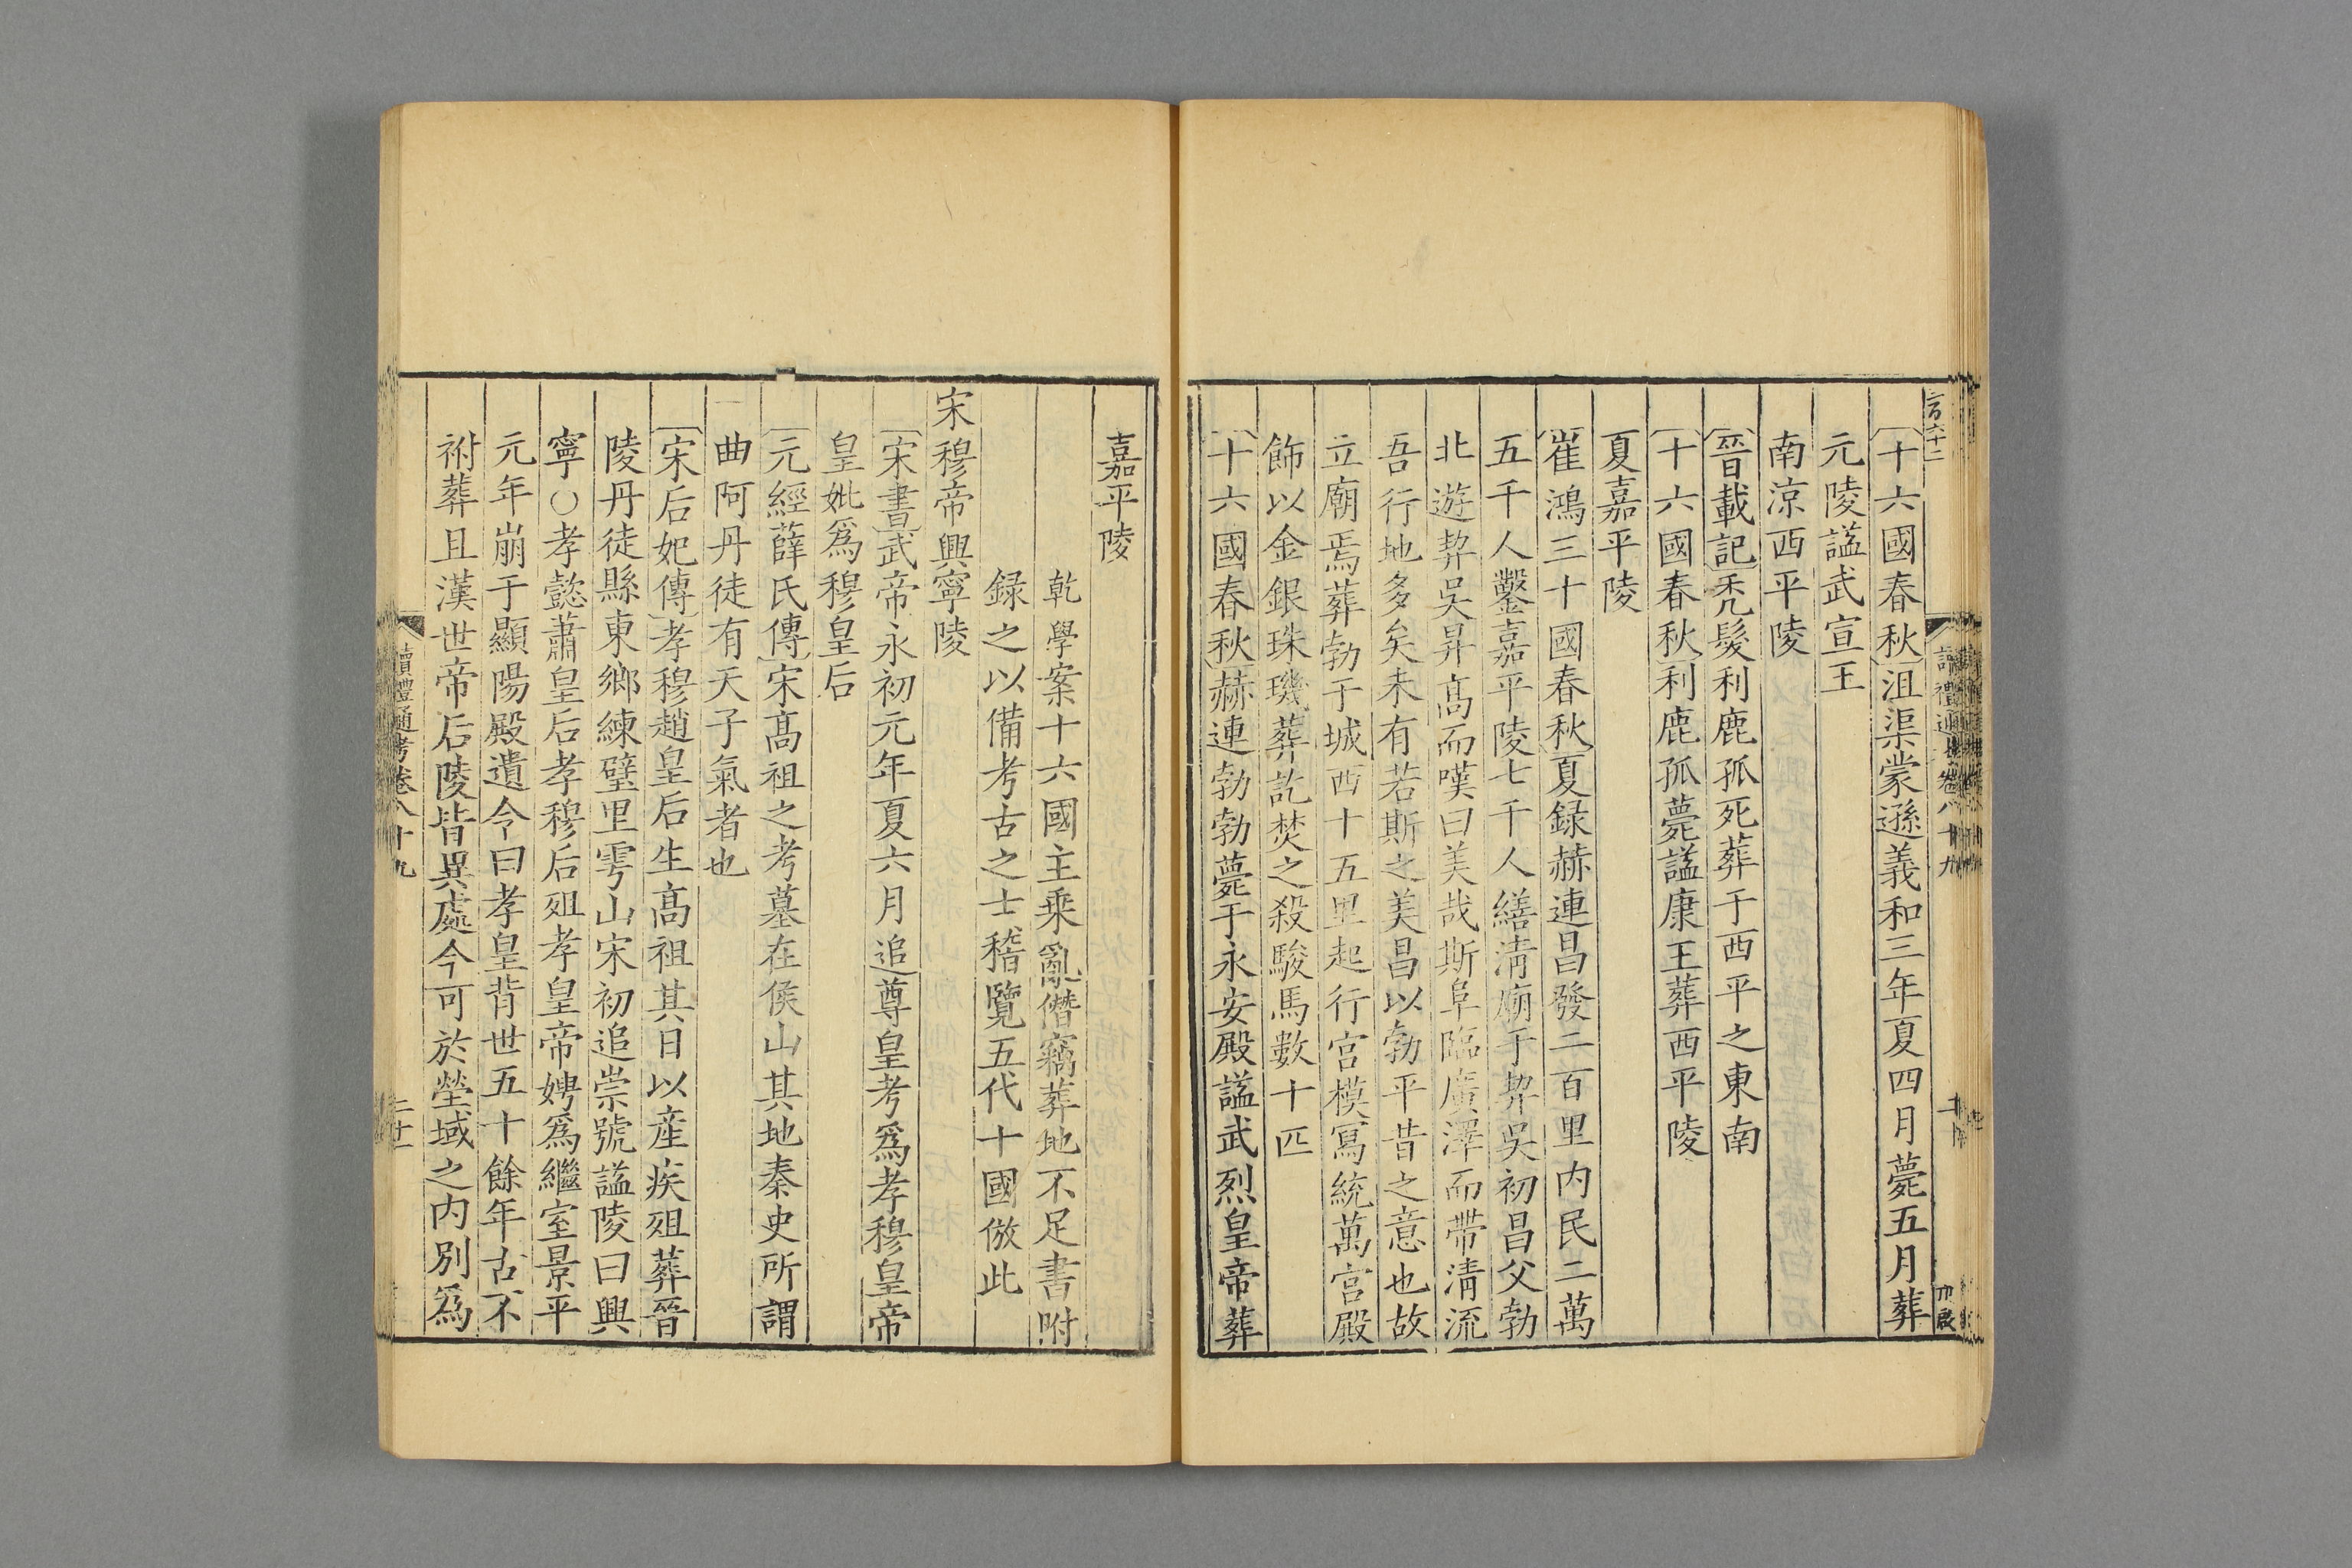 十六國春秋沮渠蒙遜義和三年夏四月薨五月葬
元陵謚武宣王
南涼西平陵
晉載記禿髮利鹿孤死葬于西平之東南
十六國春秋利鹿孤薨謚康王葬西平陵
夏嘉平陵
崔鴻三十國春秋夏録赫連昌發二百里内民二萬
五千人鑿嘉平陵七千人繕清廟于契吳初昌父勃
北遊契吳昇髙而嘆曰美哉斯阜臨廣澤而帶清流
吾行地多矣未有若斯之美昌以勃平昔之意也故
立廟焉葬勃于城西十五里起行宫模冩統萬宫殿
飾以金銀珠璣葬訖焚之殺駿馬數十匹
十六國春秋赫連勃勃薨于永安殿謚武烈皇帝葬
嘉平陵
乾學案十六國主乗亂僭竊葬地不足書附
録之以備考古之士稽覽五代十國倣此
宋穆帝興寧陵
宋書武帝永初元年夏六月追尊皇考爲孝穆皇帝
皇妣爲穆皇后
元經薛氏傳宋髙祖之考墓在侯山其地秦史所謂
曲阿丹徒有天子氣者也
宋后妃傳孝穆趙皇后生髙祖其日以産疾殂葬晉
陵丹徒縣東鄉練璧里雩山宋初追崇號謚陵曰興
寧○孝懿蕭皇后孝穆后殂孝皇帝娉爲繼室景平
元年崩于顯陽殿遺令曰孝皇背世五十餘年古不
祔葬且漢世帝后陵皆異處今可於塋域之内別爲
讀禮通考卷八十九